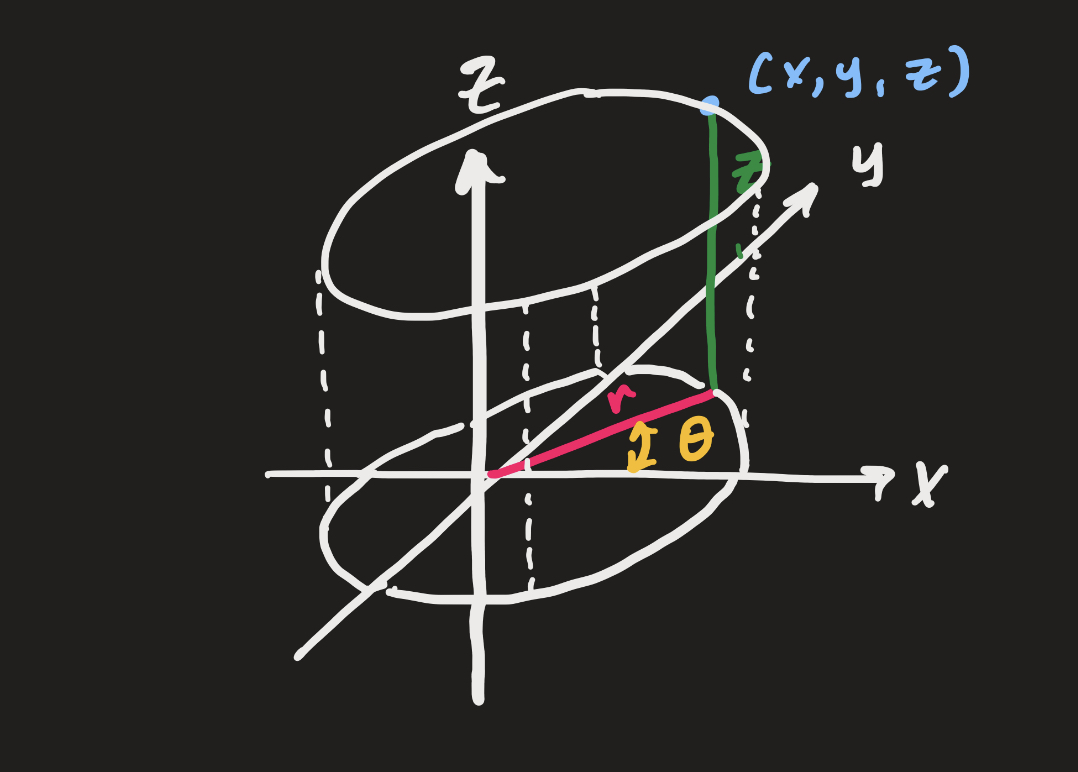 z
(x, y, z)
y
z
r
θ
x